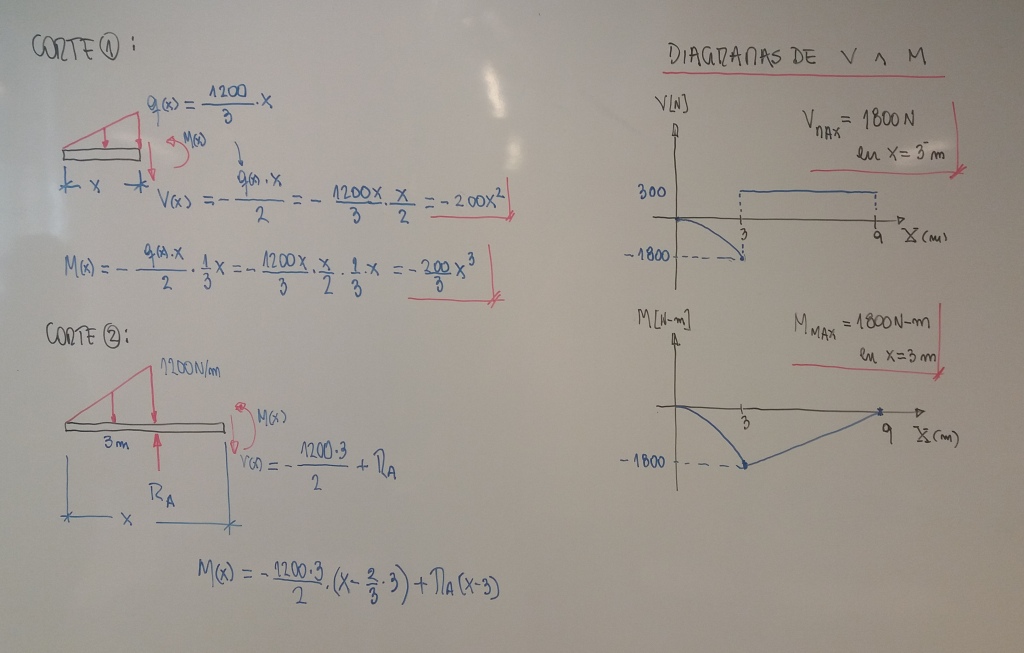 CORTE ①:
q(x) = 1200/3 · x
M(x)
x
V(x) = - q(x)·x/2 = - 1200x/3 · x/2 = -200x²
M(x) = - q(x)·x/2 · 1/3 x = - 1200x/3 · x/2 · 1/3 · x = - 200/3 x³
CORTE ②:
1200N/m
M(x)
3m
V(x) = - 1200·3/2 + RA
RA
x
M(x) = - 1200·3/2 · (x - 2/3 · 3) + RA (x-3)
DIAGRAMAS DE V ∧ M
V[N]
VMAX = 1800N
en x = 3 m
300
3
9
X(m)
-1800
M[N-m]
MMAX = 1800N-m
en x = 3 m
3
9
X(m)
-1800